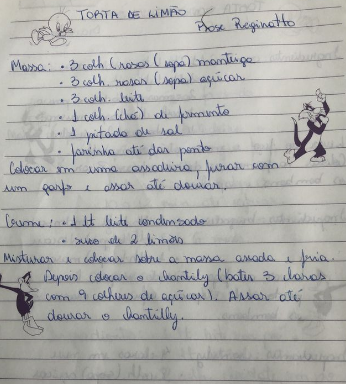 TORTA DE LIMÃO
Rose Reginatto
Massa: • 3 colh (rasas (sopa) manteiga
• 3 colh. rasas (sopa) açúcar
• 3 colh. leite
• 1 colh. (chá) de fermento
• 1 pitada de sal
• farinha até dar ponto
Colocar em uma assadura, furar com
um garfo e assar até dourar.
Creme: • 1 lt leite condensado
• suco de 2 limões
Misturar e colocar sobre a massa assada e fria.
Depois colocar o chantilly (bater 3 claras
com 9 colheres de açúcar). Assar até
dourar o chantilly.